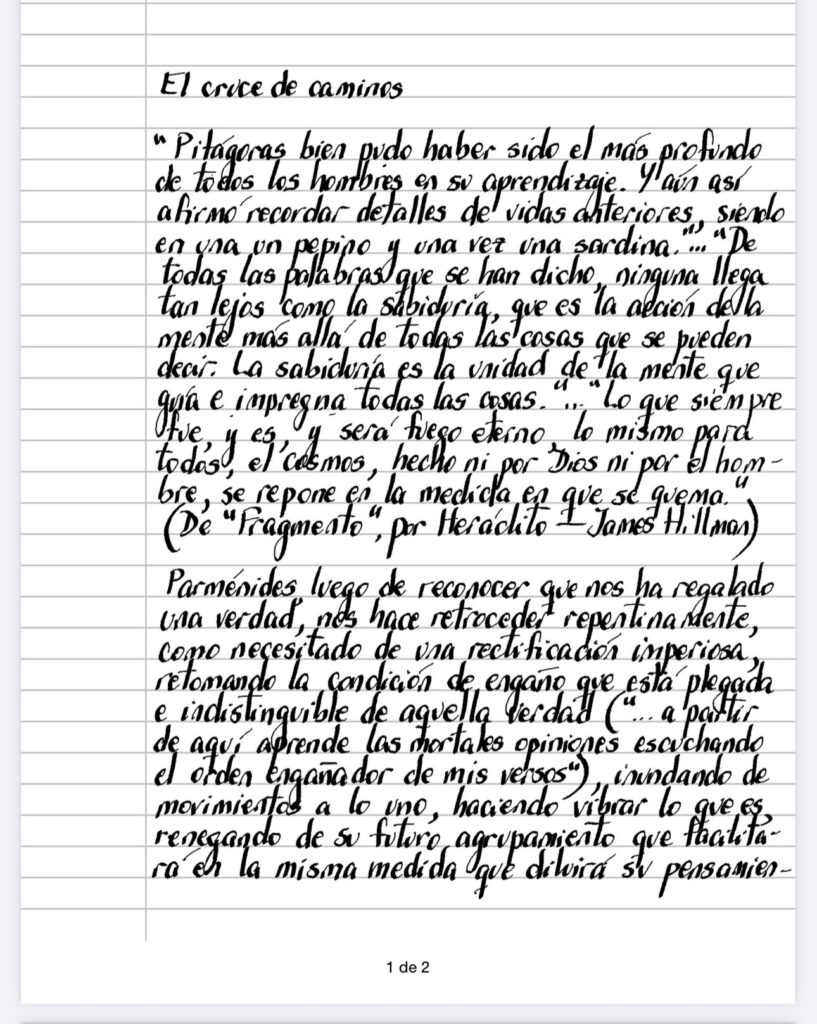 El cruce de caminos
"Pitágoras bien pudo haber sido el más profundo
de todos los hombres en su aprendizaje. Y aún así
afirmó recordar detalles de vidas anteriores, siendo
en una un pepino y una vez una sardina."... "De
todas las palabras que se han dicho, ninguna llega
tan lejos como la sabiduría, que es la acción de la
mente más allá de todas las cosas que se pueden
decir. La sabiduría es la unidad de la mente que
guía e impregna todas las cosas."..."Lo que siempre
fue, y es, y será fuego eterno, lo mismo para
todos, el cosmos, hecho ni por Dios ni por el hom-
bre, se repone en la medida en que se quema."
(De "Fragmento", por Heráclito – James Hillman)
Parménides, luego de reconocer que nos ha regalado
una verdad, nos hace retroceder repentinamente,
como necesitado de una rectificación imperiosa,
retomando la condición de engaño que está plegada
e indistinguible de aquella verdad ("... a partir
de aquí aprende las mortales opiniones escuchando
el orden engañador de mis versos"), inundando de
movimientos a lo uno, haciendo vibrar lo que es,
renegando de su futuro agrupamiento que facilita-
rá en la misma medida que diluirá su pensamien-
1 de 2